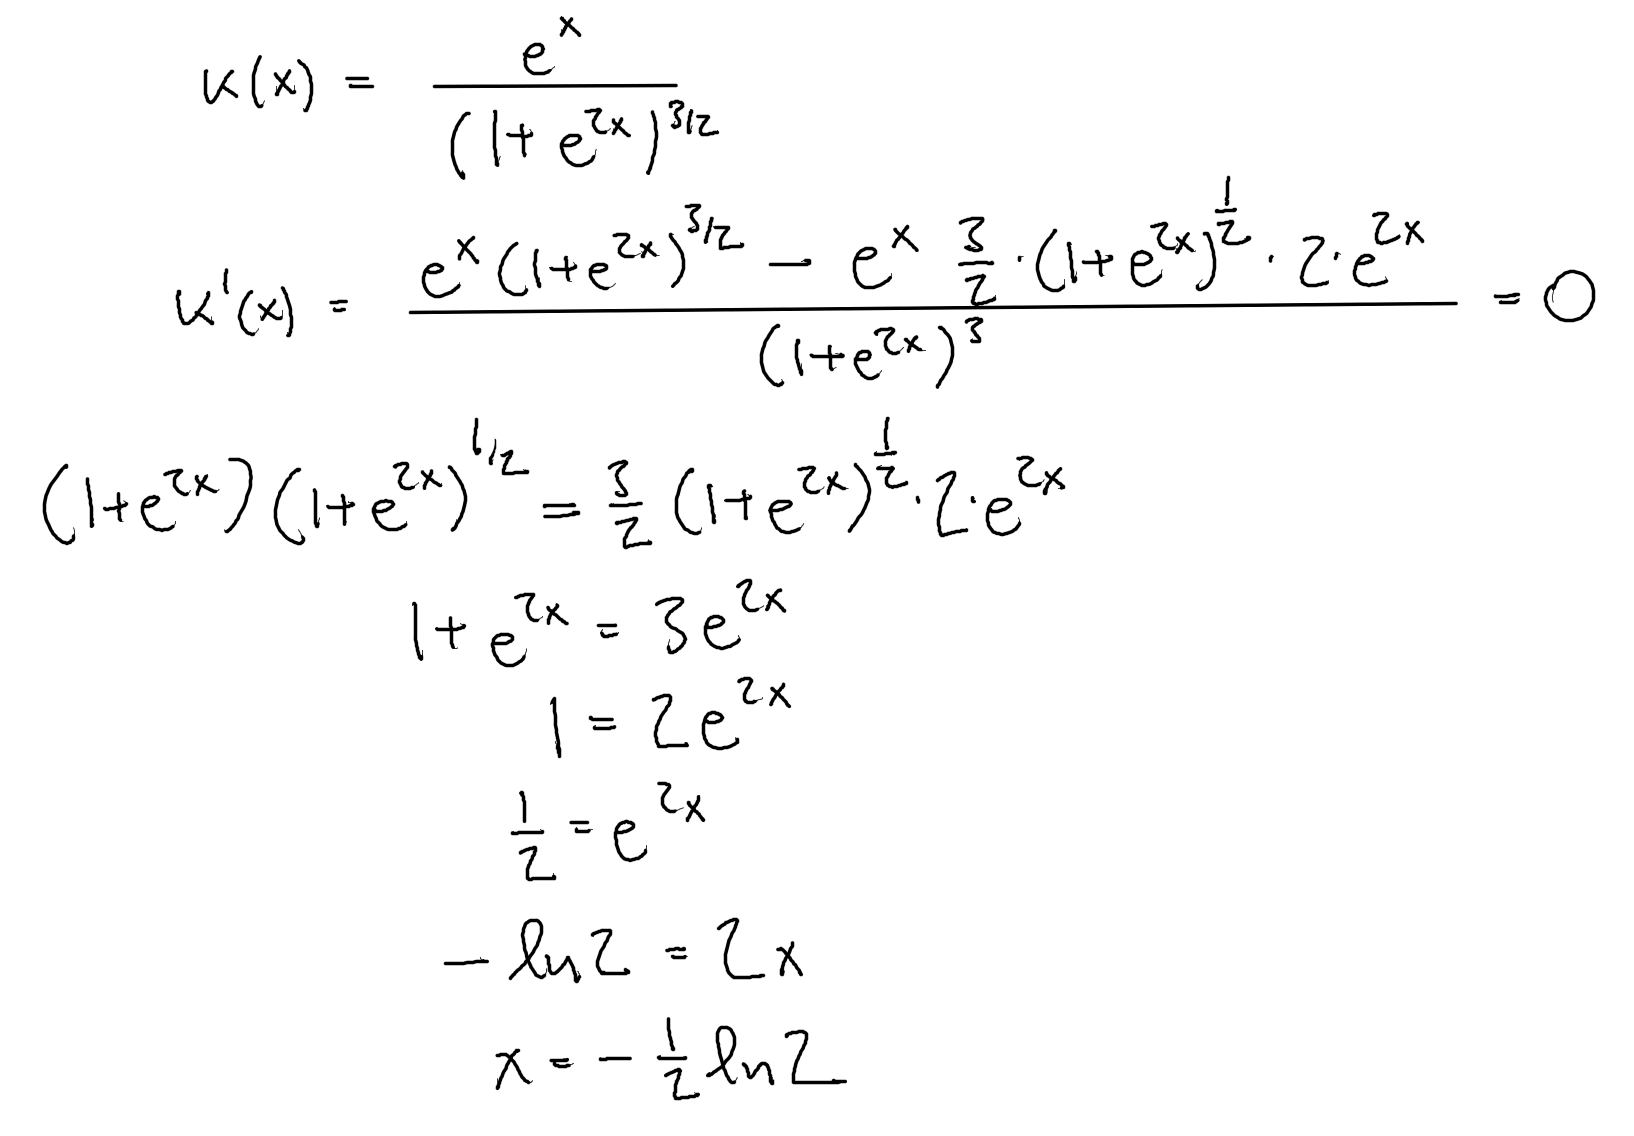 κ(x) = e^x / (1+e^{2x})^{3/2}
κ'(x) = (e^x (1+e^{2x})^{3/2} − e^x 3/2 · (1+e^{2x})^{1/2} · 2 · e^{2x}) / (1+e^{2x})^3 = 0
(1+e^{2x})(1+e^{2x})^{1/2} = 3/2 (1+e^{2x})^{1/2} · 2 · e^{2x}
1+e^{2x} = 3e^{2x}
1 = 2e^{2x}
1/2 = e^{2x}
−ln2 = 2x
x = −1/2 ln2